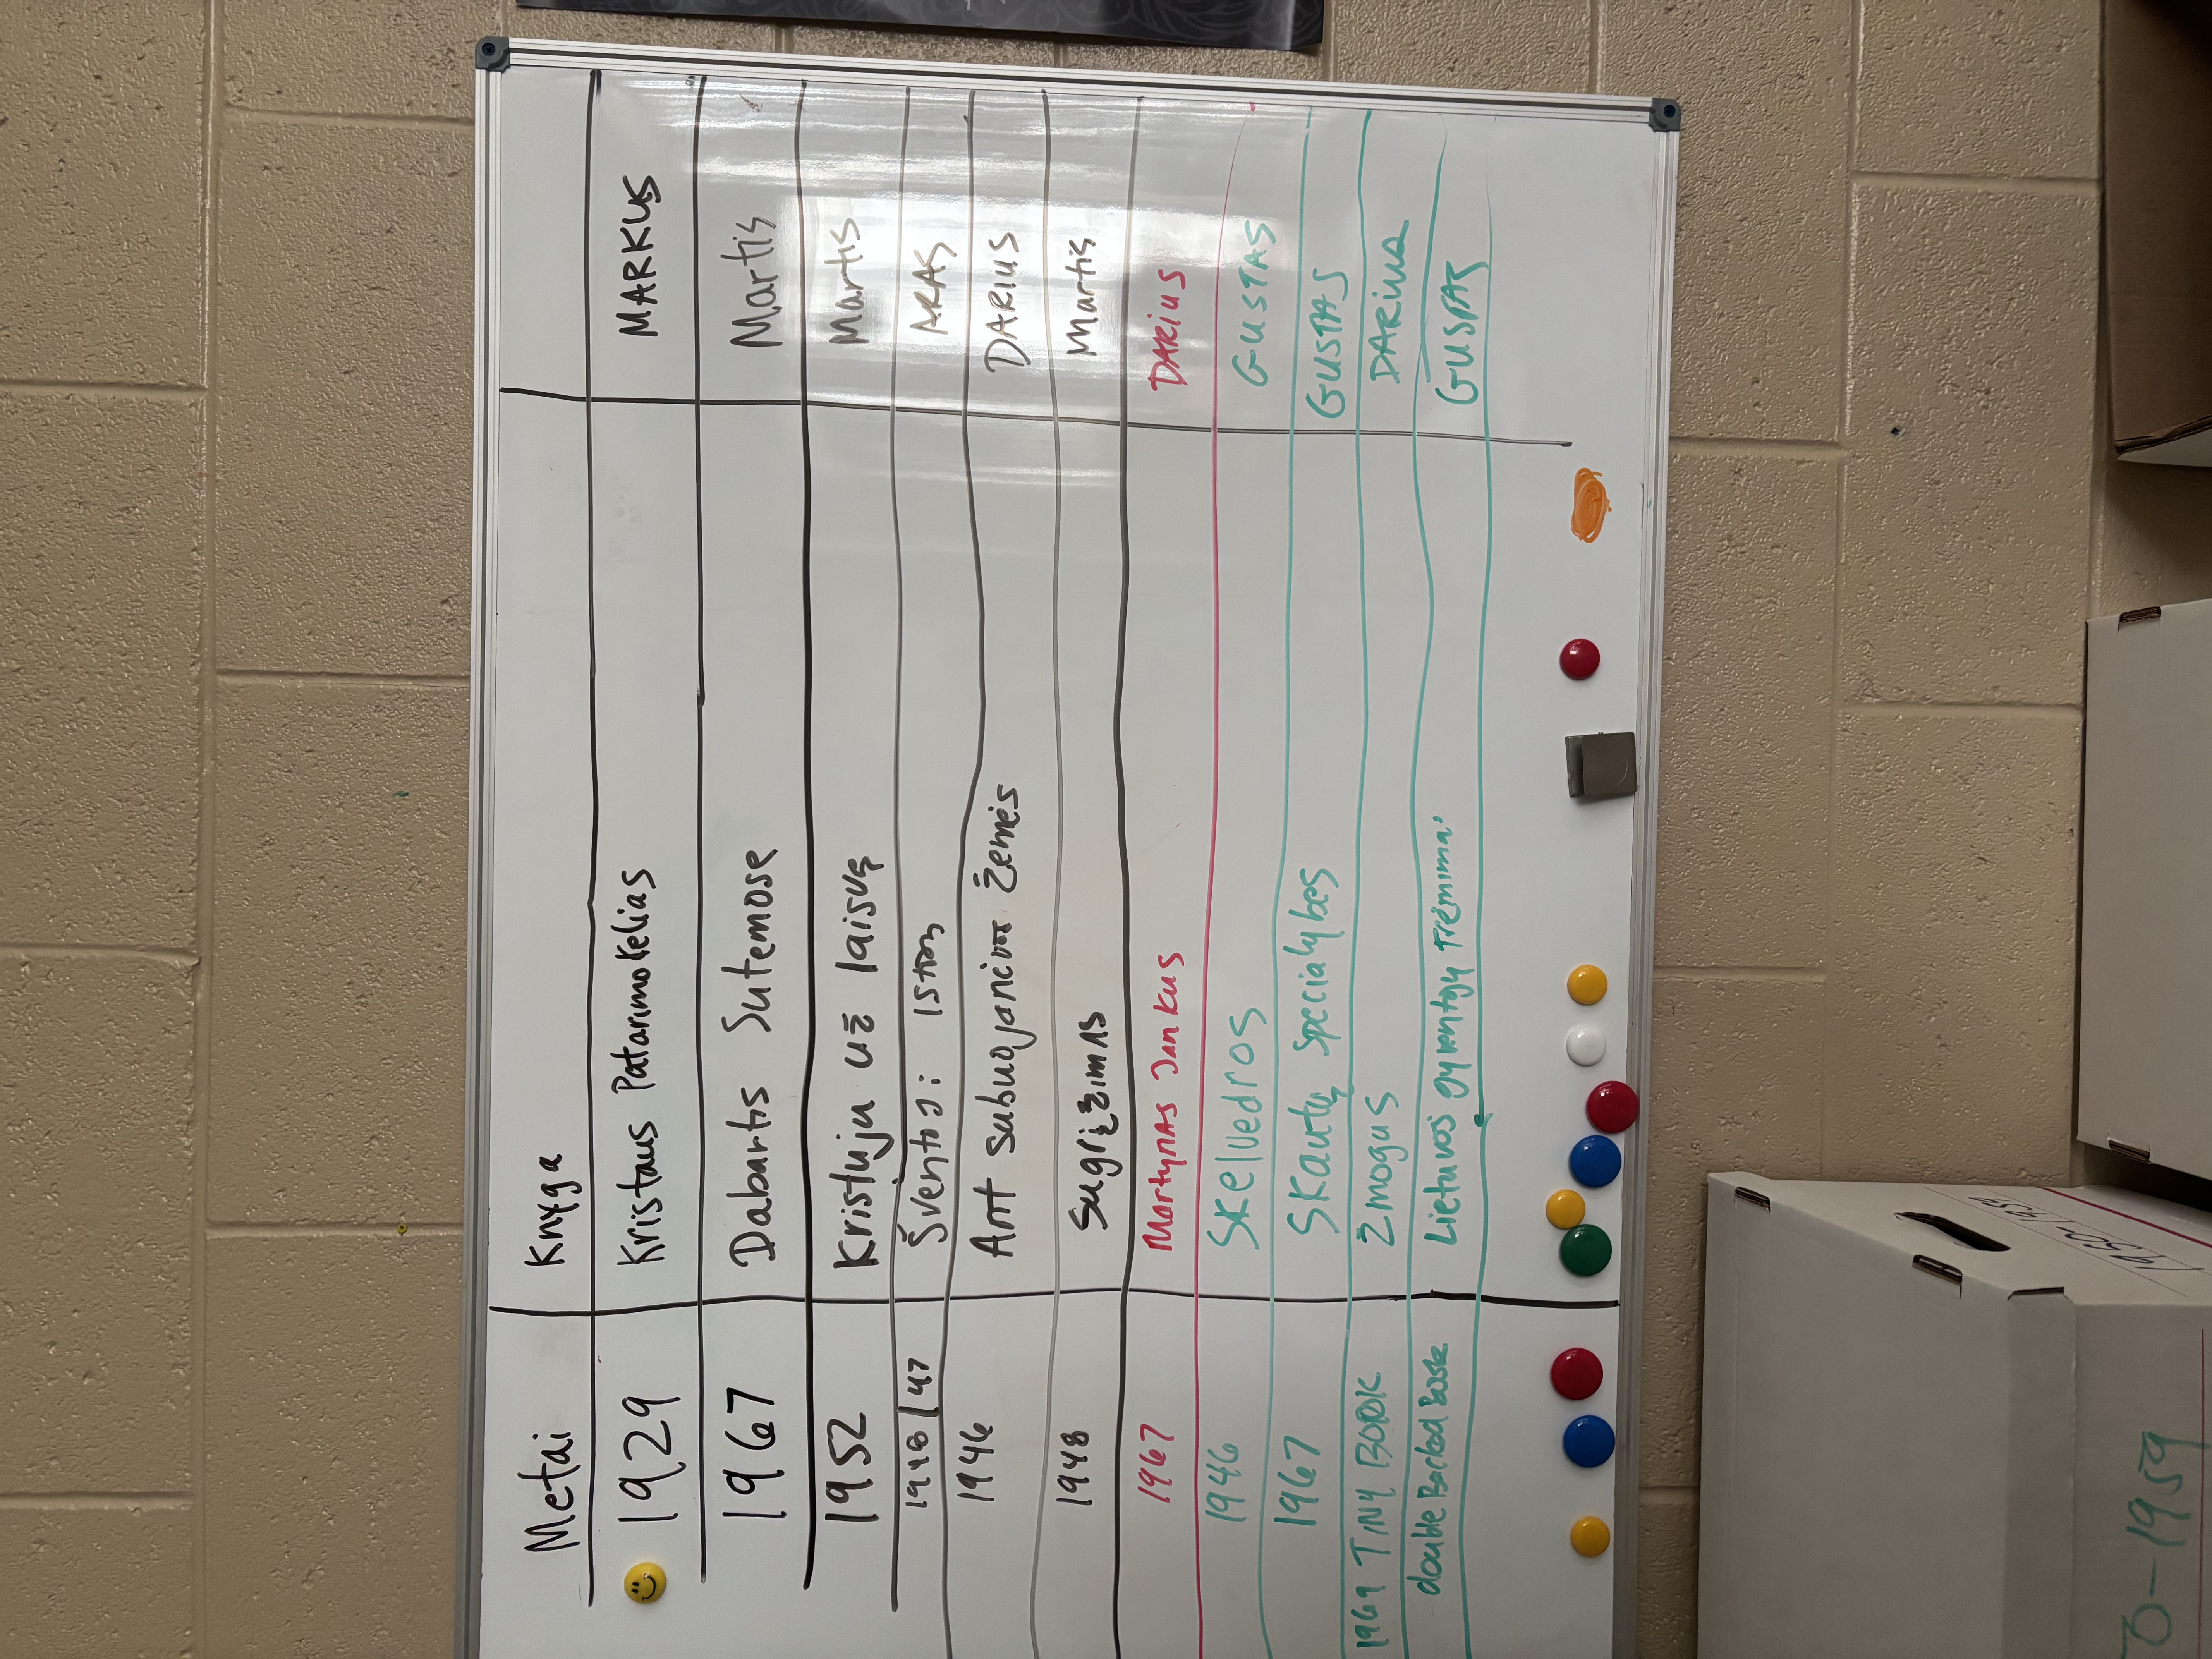 Metai Knyga
1929 Kristaus Patarimo Kelias MARKUS
1967 Dabartis Sutemose Martis
1952 Kristuju už laisvę Martis
1948/47 Šventoji: ARAS
1946 Ant subuojančios žemės DARIUS
1948 Sugrįžimas Martis
1967 Martynas Jankus DARIUS
1946 Skelvedros GUSTAS
1967 Skautų specialybes GUSTAS
1969 TINY BOOK Žmogus DARIUS
double Backed book Lietuvos gyventojų trėmimai GUSTAS
1950-1959
50-1959